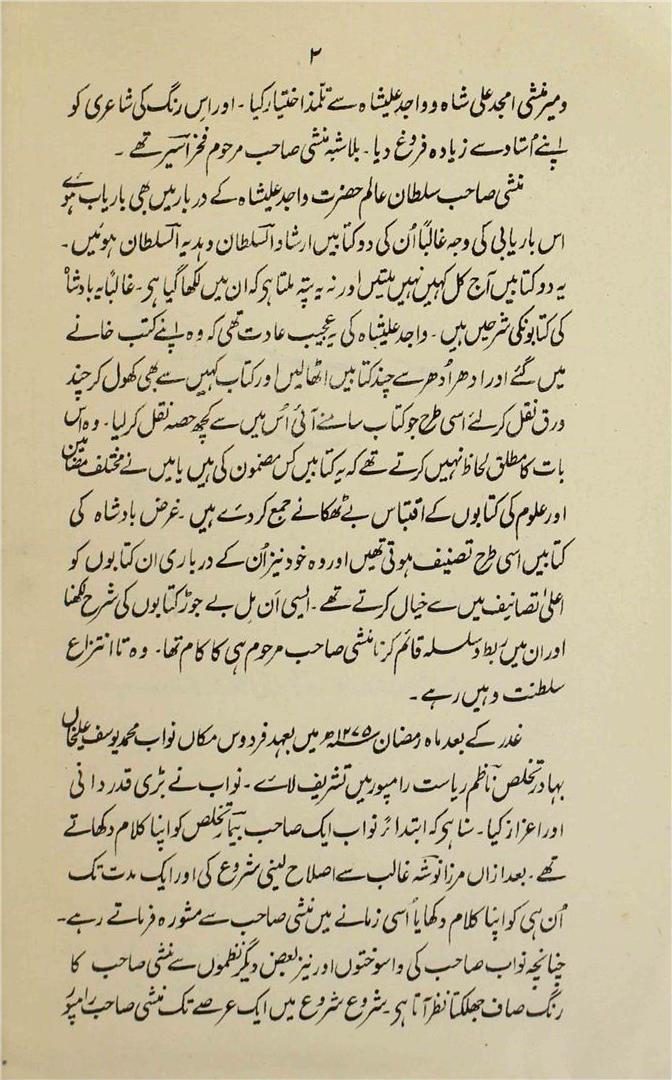 ۲
ومیر منشی امجد علی شاہ و واجد علیشاہ سے تلمذ اختیار کیا ۔ اور اس رنگ کی شاعری کو
اپنے اُستاد سے زیادہ فروغ دیا ۔ بلاشبہ منشی صاحب مرحوم فخر اسیر تھے ۔
منشی صاحب سلطان عالم حضرت واجد علیشاہ کے دربار میں بھی باریاب ہوئے
اس باریابی کی وجہ غالباً اُن کی دو کتابیں ارشاد السلطان و ہدیہ السلطان ہوئیں ۔
یہ دو کتابیں آج کل کہیں نہیں ملتیں اور نہ یہ پتہ ملتا ہی کہ ان میں لکھا گیا ہی ۔ غالباً یہ بادشاہ
کی کتابونکی شرحیں ہیں ۔ واجد علیشاہ کی یہ عجیب عادت تھی کہ وہ اپنے کتب خانے
میں گئے اور ادھر اُدھر سے چند کتابیں اٹھا لیں اور کتاب کہیں سے بھی کھول کر چند
ورق نقل کر لئے اسی طرح جو کتاب سامنے آئی اُس میں سے کچھ حصہ نقل کر لیا ۔ وہ اس
بات کا مطلق لحاظ نہیں کرتے تھے کہ یہ کتابیں کس مضمون کی ہیں یا میں نے مختلف مضامین
اور علوم کی کتابوں کے اقتباس بے ٹھکانے جمع کر دئے ہیں ۔ غرض بادشاہ کی
کتابیں اسی طرح تصنیف ہوتی تھیں اور وہ خود نیز اُن کے درباری ان کتابوں کو
اعلیٰ تصانیف میں سے خیال کرتے تھے ۔ ایسی ان مِل بے جوڑ کتابوں کی شرح لکھنا
اور ان میں ربط و سلسلہ قائم کرنا منشی صاحب مرحوم ہی کا کام تھا ۔ وہ تا انتزاع
سلطنت وہیں رہے ۔
غدر کے بعد ماہ رمضان ۱۲۷۵ھ میں بعہد فردوس مکاں نواب محمد یوسف علیخاں
بہادر تخلص ناظم ریاست رامپور میں تشریف لائے ۔ نواب نے بڑی قدر دانی
اور اعزاز کیا ۔ سنا ہی کہ ابتداءً نواب ایک صاحب بیمار تخلص کو اپنا کلام دکھاتے
تھے ۔ بعد ازاں مرزا نوشہ غالب سے اصلاح لینی شروع کی اور ایک مدت تک
اُن ہی کو اپنا کلام دکھایا اُسی زمانے میں منشی صاحب سے مشورہ فرماتے رہے ۔
چنانچہ نواب صاحب کی واسوختوں اور نیز بعض دیگر نظموں سے منشی صاحب کا
رنگ صاف جھلکتا نظر آتا ہی ۔ شروع شروع میں ایک عرصے تک منشی صاحب رامپور